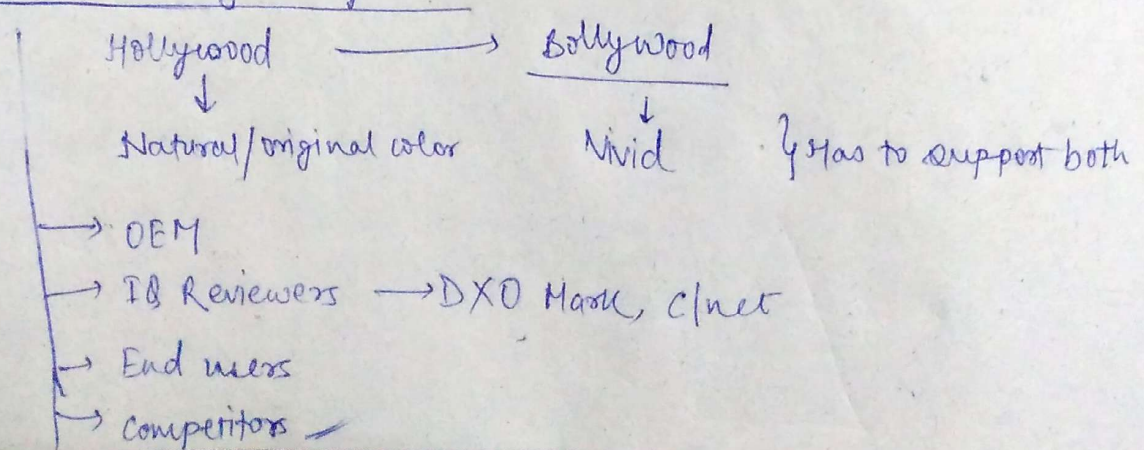 Hollywood → Bollywood
↓ ↓
Natural/original color Vivid } Has to support both
→ OEM
→ IQ Reviewers → DXO Mark, c/net
→ End users
→ Competitors